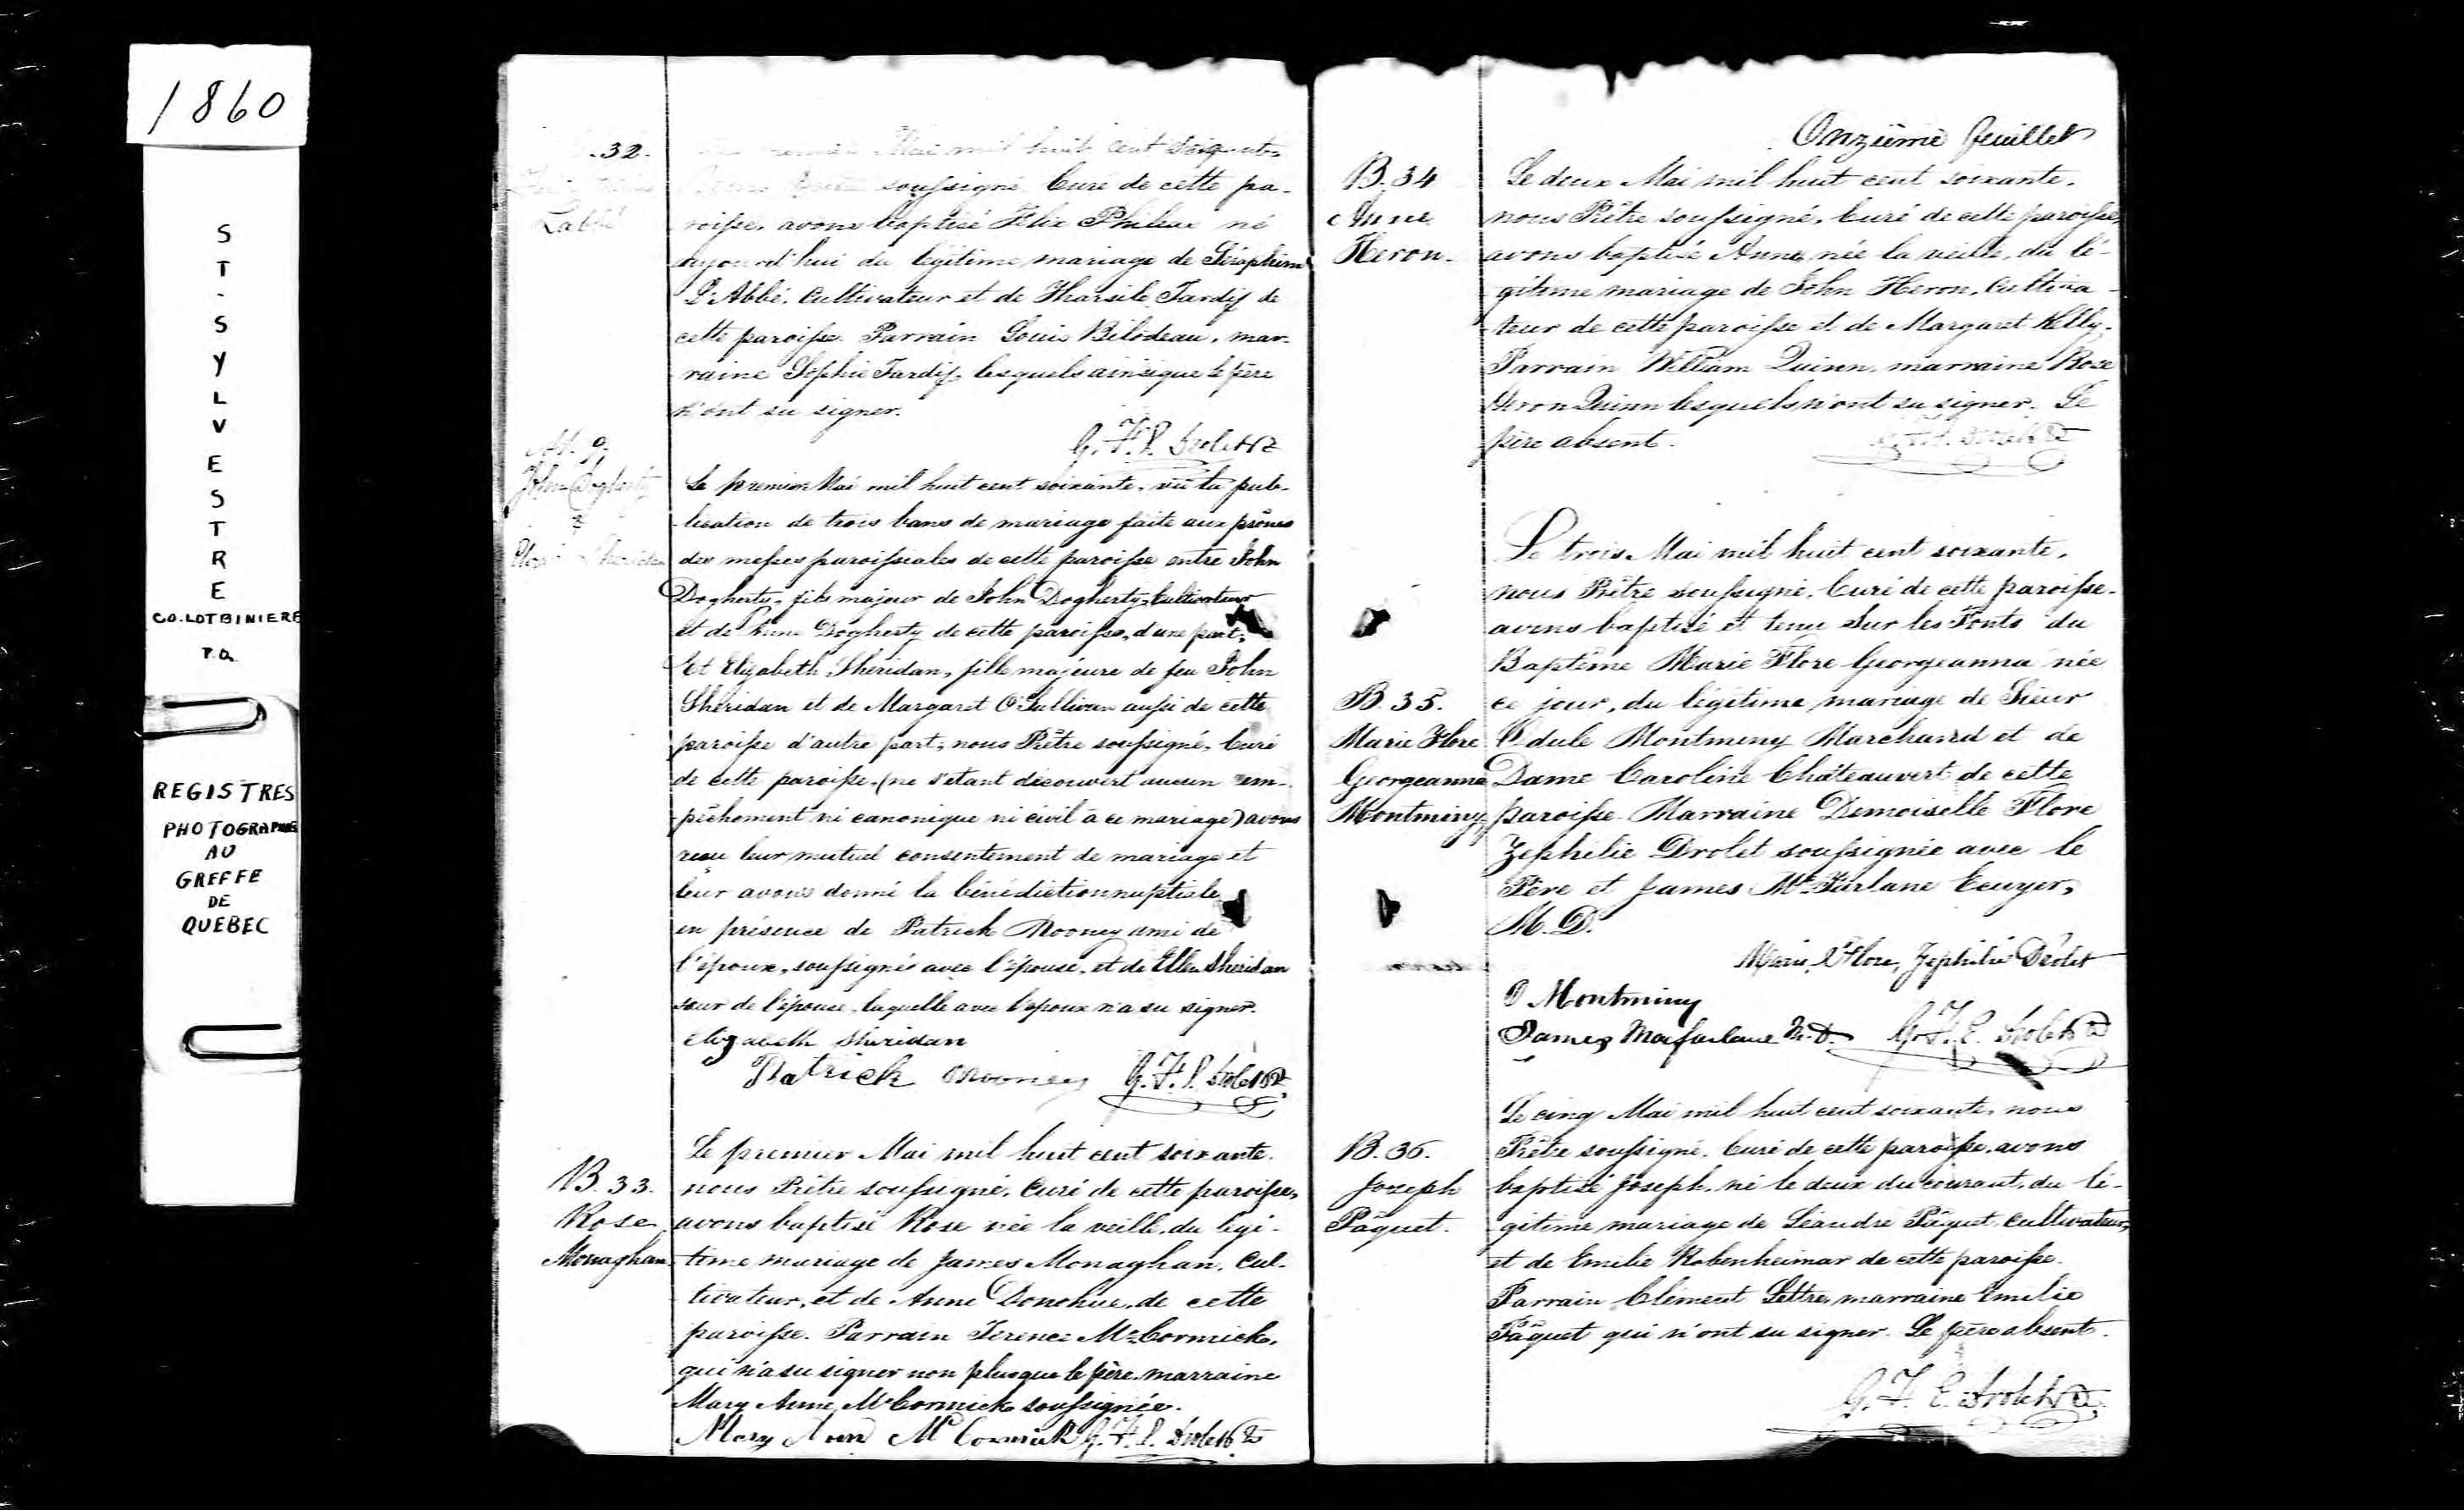 1860
ST-SYLVESTRE
CO. LOTBINIERE
P.Q.
REGISTRES
PHOTOGRAPHIÉS
AU
GREFFE
DE
QUEBEC
.32.
Labbé
Mai mil huit cent soixante,
soussigné Curé de cette pa-
roisse, avons baptisé Félix Philéas né
aujourd'hui du légitime mariage de Séraphin
L'Abbé, Cultivateur et de Tharsile Tardif de
cette paroisse. Parrain Louis Bilodeau, mar-
raine Sophie Tardif, lesquels ainsi que le père
n'ont su signer.
G. F. E. Drolet Ptre
M. 9.
John Dogherty
&
Sheridan
Le premier Mai mil huit cent soixante, vu la pub-
lication de trois bans de mariage faite aux prônes
des messes paroissiales de cette paroisse entre John
Dogherty, fils majeur de John Dogherty, Cultivateur
et de Anne Dogherty de cette paroisse, d'une part;
Et Elizabeth Sheridan, fille majeure de feu John
Sheridan et de Margaret O'Sullivan aussi de cette
paroisse d'autre part, nous Prêtre soussigné, Curé
de cette paroisse, (ne s'étant découvert aucun em-
pêchement ni canonique ni civil à ce mariage) avons
reçu leur mutuel consentement de mariage et
leur avons donné la bénédiction nuptiale
en présence de Patrick Mooney ami de
l'époux, soussigné avec l'épouse, et de Ellen Sheridan
sœur de l'épouse, laquelle avec l'époux n'a su signer.
Elizabeth Sheridan
Patrick Mooney G. F. E. Drolet Ptre
B. 33.
Rose
Monaghan
Le premier Mai mil huit cent soixante.
nous Prêtre soussigné, Curé de cette paroisse,
avons baptisé Rose née la veille, du légi-
time mariage de James Monaghan, Cul-
tivateur, et de Anne Donohue, de cette
paroisse. Parrain Terence McCormick,
qui n'a su signer non plus que le père. marraine
Mary Anne McCormick soussignée.
Mary Ann McCormick G. F. E. Drolet Ptre
Onzième feuillet
B. 34
Anne
Heron.
Le deux Mai mil huit cent soixante.
nous Prêtre soussigné, Curé de cette paroisse,
avons baptisé Anne, née la veille, du lé-
gitime mariage de John Heron, Cultiva-
teur de cette paroisse et de Margaret Kelly.
Parrain William Quinn, marraine Rose
Heron Quinn lesquels n'ont su signer. Le
père absent. G. F. E. Drolet Ptre
B. 35.
Marie Flore
Georgeanna
Montminy
Le trois Mai mil huit cent soixante,
nous Prêtre soussigné, Curé de cette paroisse.
avons baptisé et tenu sur les Fonts du
Baptême Marie Flore Georgeanna née
ce jour, du légitime mariage de Sieur
Odule Montminy Marchand et de
Dame Caroline Châteauvert de cette
paroisse. Marraine Demoiselle Flore
Zephilie Drolet soussignée avec le
Père et James McFarlane Ecuyer,
M. D.
Marie, Flore, Zephilie Drolet
O Montminy
James Macfarlane M.D. G. F. E. Drolet Ptre
B. 36.
Joseph
Pâquet.
Le cinq Mai mil huit cent soixante, nous
Prêtre soussigné, Curé de cette paroisse, avons
baptisé Joseph, né le deux du courant, du lé-
gitime mariage de Léandre Pâquet, Cultivateur,
et de Emilie Robenheimar de cette paroisse.
Parrain Clément Lettre, marraine Emilie
Pâquet qui n'ont su signer. Le père absent.
G. F. E. Drolet Ptre